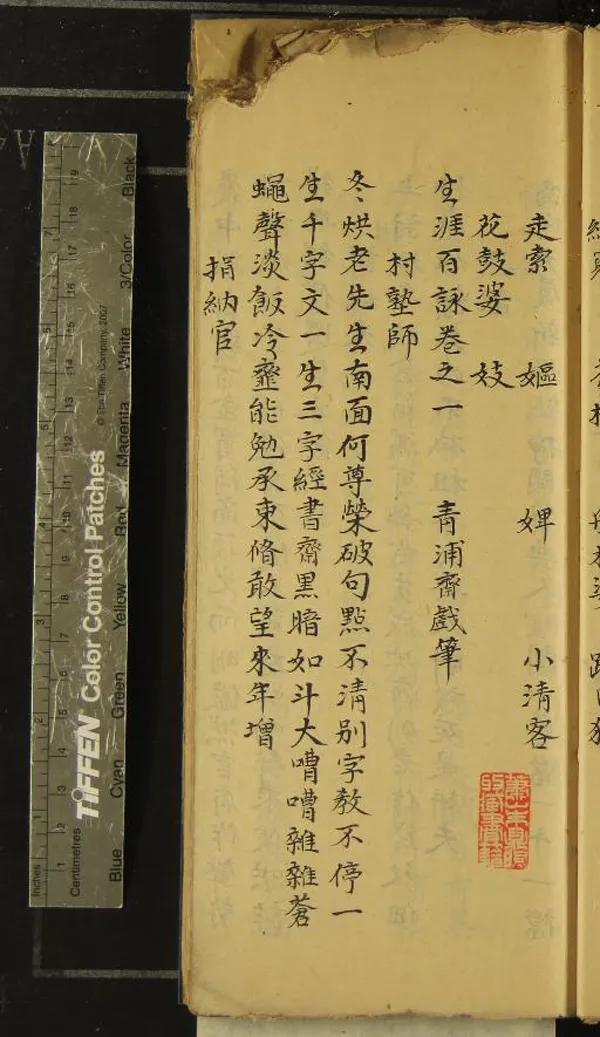 走索 嫗 婢 小清客
花鼓婆 妓
生涯百詠卷之一 青浦齋戲筆
村塾師
冬烘老先生南面何尊榮破句點不清别字教不停一
生千字文一生三字經書齋黑暗如斗大嘈嘈雜雜蒼
蠅聲淡飯冷虀能勉承束脩敢望來年增
捐納官
Inches
Centimetres
TIFFEN Color Control Patches
© The Tiffen Company, 2007
Blue Cyan Green Yellow Red Magenta White 3/Color Black